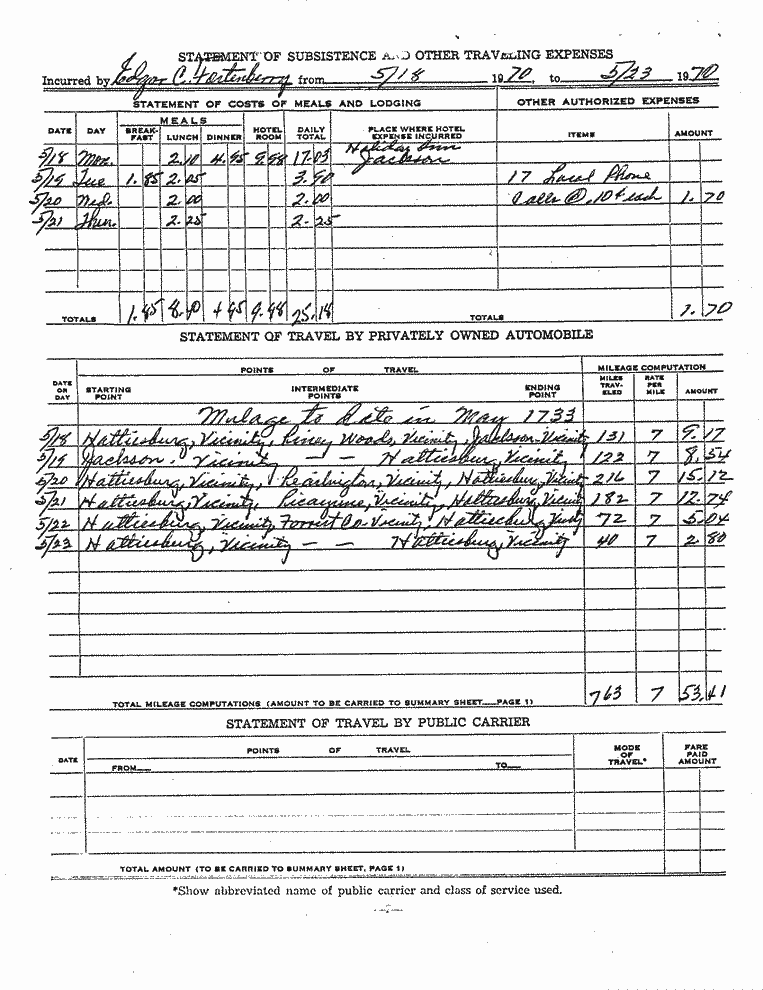 STATEMENT OF SUBSISTENCE AND OTHER TRAVELING EXPENSES
Incurred by Edgar C. Fortenberry from 5/18 1970, to 5/23 1970
STATEMENT OF COSTS OF MEALS AND LODGING OTHER AUTHORIZED EXPENSES
MEALS
DATE DAY BREAK-FAST LUNCH DINNER HOTEL ROOM DAILY TOTAL PLACE WHERE HOTEL EXPENSE INCURRED ITEMS AMOUNT
Holiday Inn
5/18 Mon. 2.10 4.95 9.98 17.03 Jackson
5/19 Tue 1.85 2.05 3.90 17 Local Phone
5/20 Wed. 2.00 2.00 Calls @ .10¢ each 1.70
5/21 Thur. 2.25 2.25
TOTALS 1.85 8.40 4.95 9.98 25.18 TOTALS 1.70
STATEMENT OF TRAVEL BY PRIVATELY OWNED AUTOMOBILE
POINTS OF TRAVEL MILEAGE COMPUTATION
DATE OR DAY STARTING POINT INTERMEDIATE POINTS ENDING POINT MILES TRAV-ELED RATE PER MILE AMOUNT
Milage to Date in May 1733
5/18 Hattiesburg, Vicinity, Piney Woods, Vicinity, Jackson-Vicinity 131 7 9.17
5/19 Jackson, Vicinity — — Hattiesburg, Vicinity 122 7 8.54
5/20 Hattiesburg, Vicinity, Pearlington, Vicinity, Hattiesburg, Vicinity 216 7 15.12
5/21 Hattiesburg, Vicinity, Picayune, Vicinity, Hattiesburg, Vicinity 182 7 12.74
5/22 Hattiesburg, Vicinity, Forrest Co-Vicinity, Hattiesburg 72 7 5.04
5/23 Hattiesburg, Vicinity — — Hattiesburg, Vicinity 40 7 2.80
TOTAL MILEAGE COMPUTATIONS (AMOUNT TO BE CARRIED TO SUMMARY SHEET PAGE 1) 763 7 53.41
STATEMENT OF TRAVEL BY PUBLIC CARRIER
DATE POINTS OF TRAVEL MODE OF TRAVEL* FARE PAID AMOUNT
FROM TO
TOTAL AMOUNT (TO BE CARRIED TO SUMMARY SHEET, PAGE 1)
*Show abbreviated name of public carrier and class of service used.